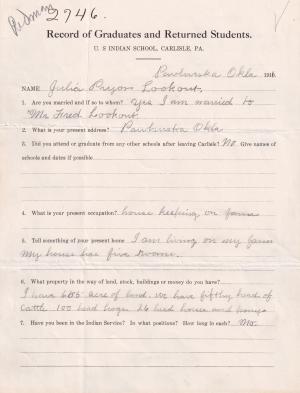 2746.
Record of Graduates and Returned Students.
U. S INDIAN SCHOOL, CARLISLE, PA.
Pawhuska Okla 191
NAME Julia Pryor Lookout.
1. Are you married and if so to whom? Yes I am married to
Mr Fred Lookout
2. What is your present address? Pawhuska Okla
3. Did you attend or graduate from any other schools after leaving Carlisle? No Give names of
schools and dates if possible
4. What is your present occupation? house keeping on farm
5. Tell something of your present home I am living on my farm
My house has five rooms.
6. What property in the way of land, stock, buildings or money do you have?
I have acre of land. we have head of
Cattle 100 head hogs 26 head horse and
7. Have you been in the Indian Service? In what positions? How long in each? No.